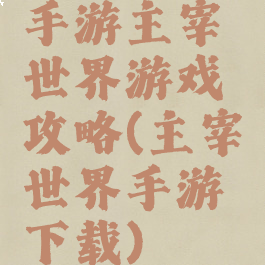 手游主宰
世界游戏
攻略(主宰
世界手游
下载)